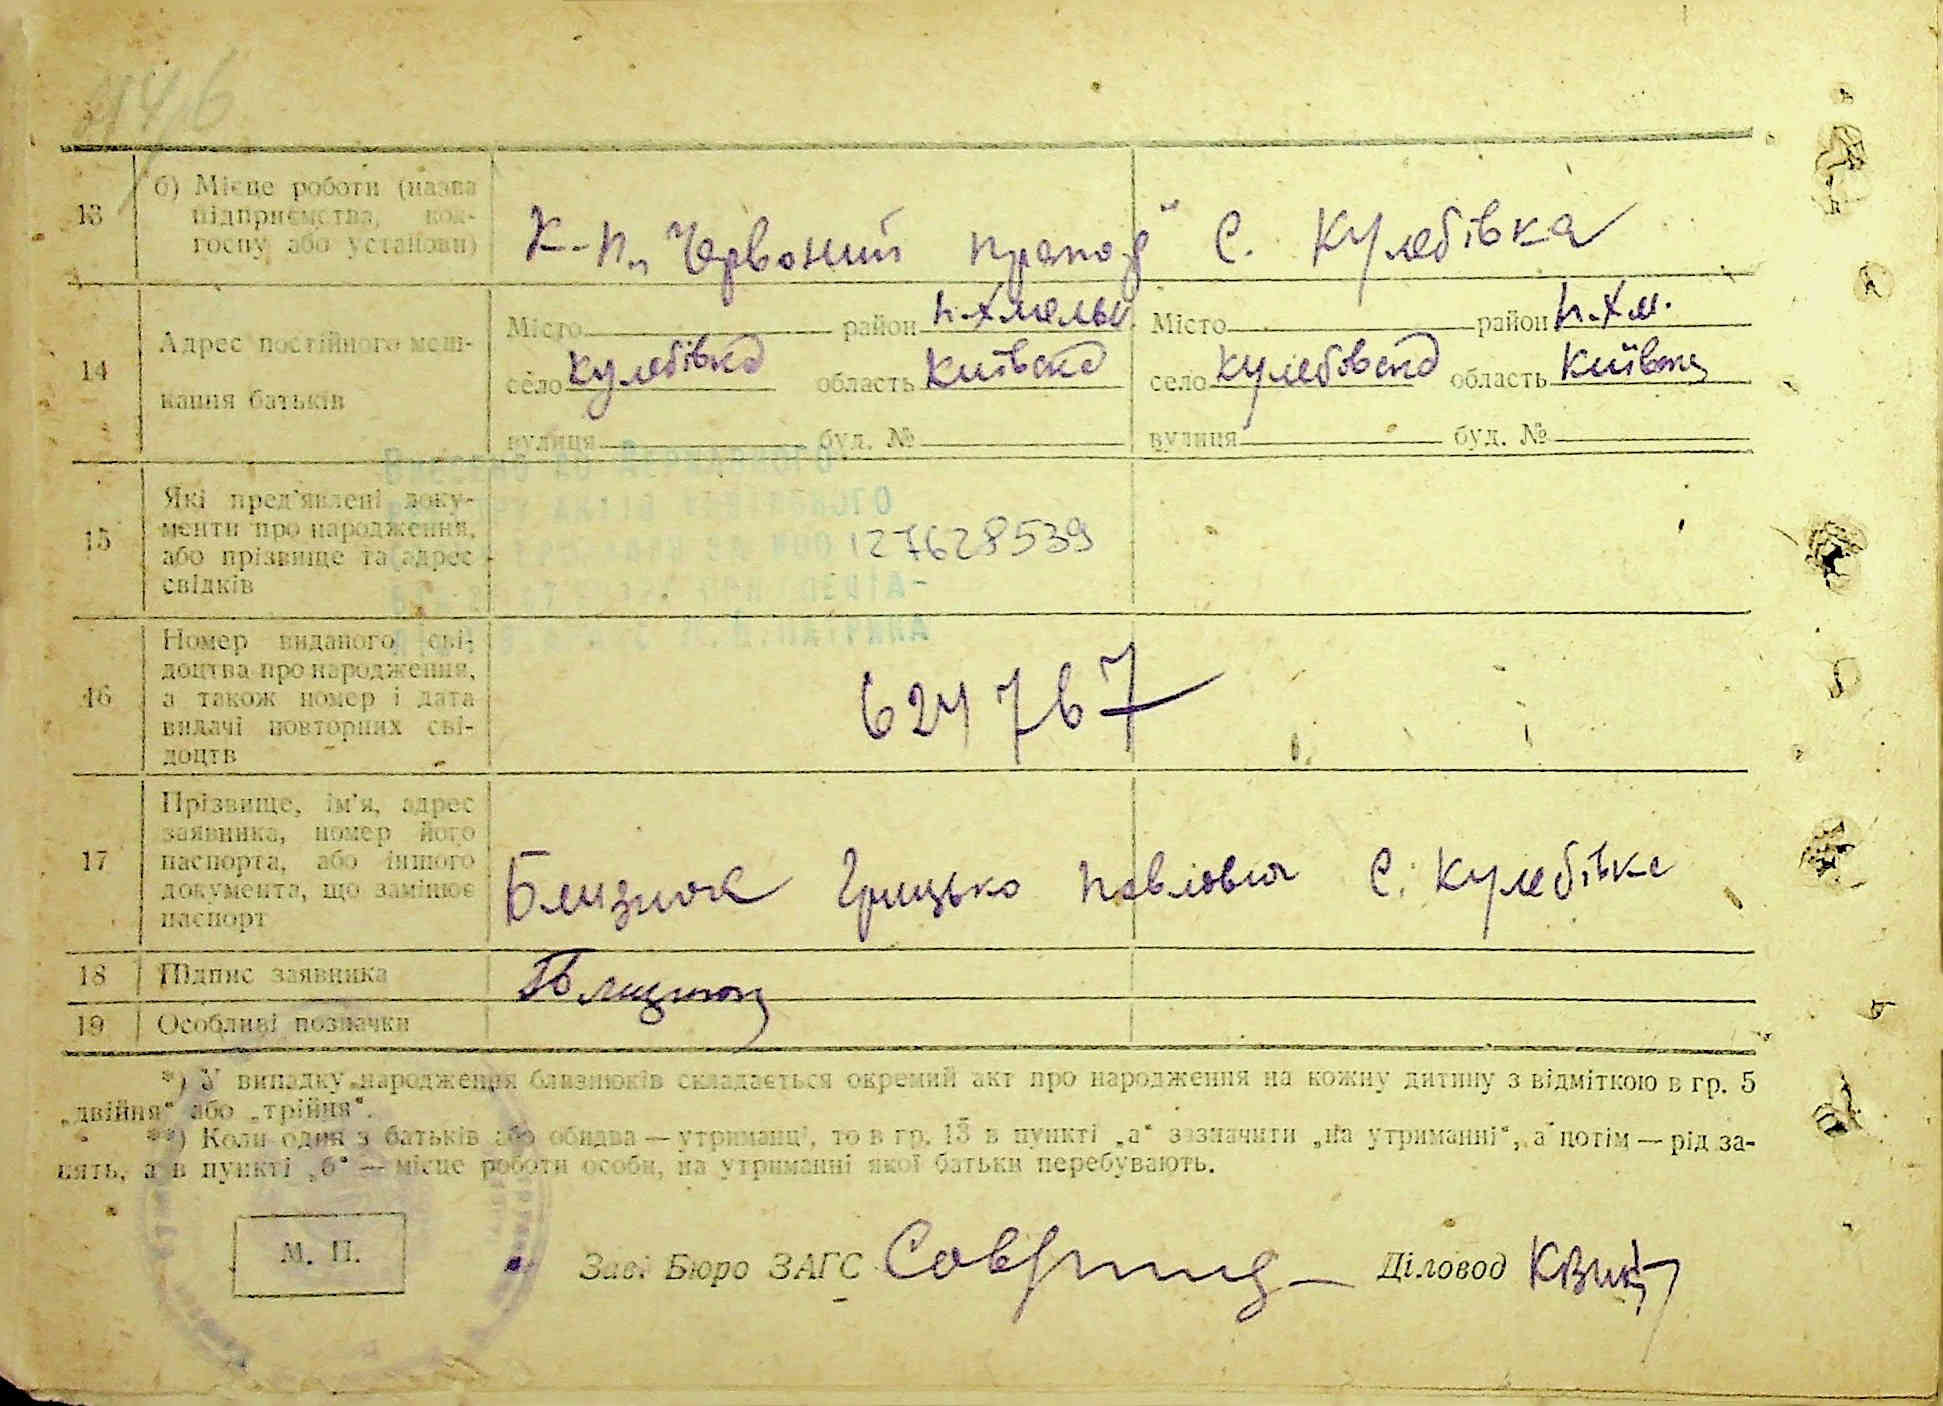 446
13 б) Місце роботи (назва
підприємства, кол-
госпу або установи)
К-п „Червоний прапор" с. Кулебівка
14 Адрес постійного меш-
кання батьків
Місто район н-Хмельн. Місто район н-Хм.
село Кулебівка область Київска село Кулебовска область Київськ
вулиця буд. № вулиця буд. №
15 Які пред'явлені доку-
менти про народження,
або прізвище та адрес
свідків
127628539
16 Номер виданого сві-
доцтва про народження,
а також номер і дата
видачі повторних сві-
доцтв
624767
17 Прізвище, ім'я, адрес
заявника, номер його
паспорта, або іншого
документа, що замінює
паспорт
Близнюк Грицько Павлович с. Кулебівка
18 Підпис заявника
19 Особливі позначки
*) У випадку народження близнюків складається окремий акт про народження на кожну дитину з відміткою в гр. 5
„двійня" або „трійня".
**) Коли один з батьків або обидва — утриманці, то в гр. 13 в пункті „а" зазначити „на утриманні", а потім — рід за-
нять, а в пункті „б" — місце роботи особи, на утриманні якої батьки перебувають.
М. П. Зав. Бюро ЗАГС Діловод